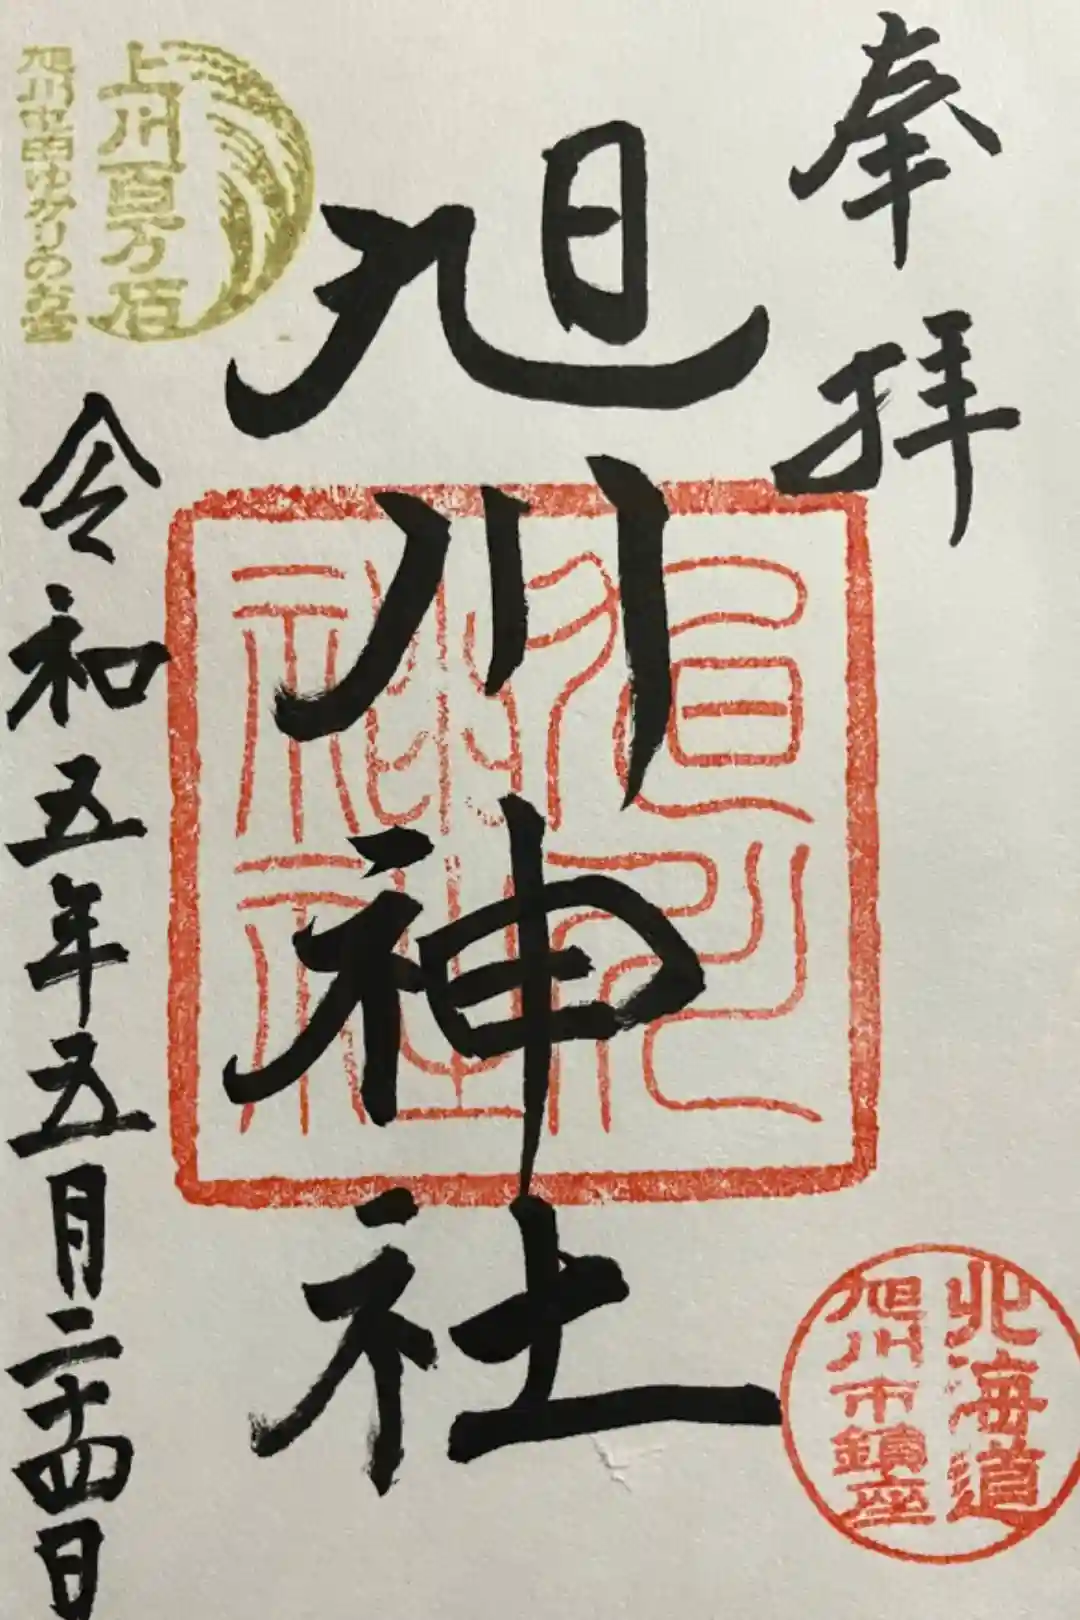 奉拝
旭川神社
旭川神社
北海道
旭川市鎮座
上川百万石
旭川屯田ゆかりのお宮
令和五年五月二十四日